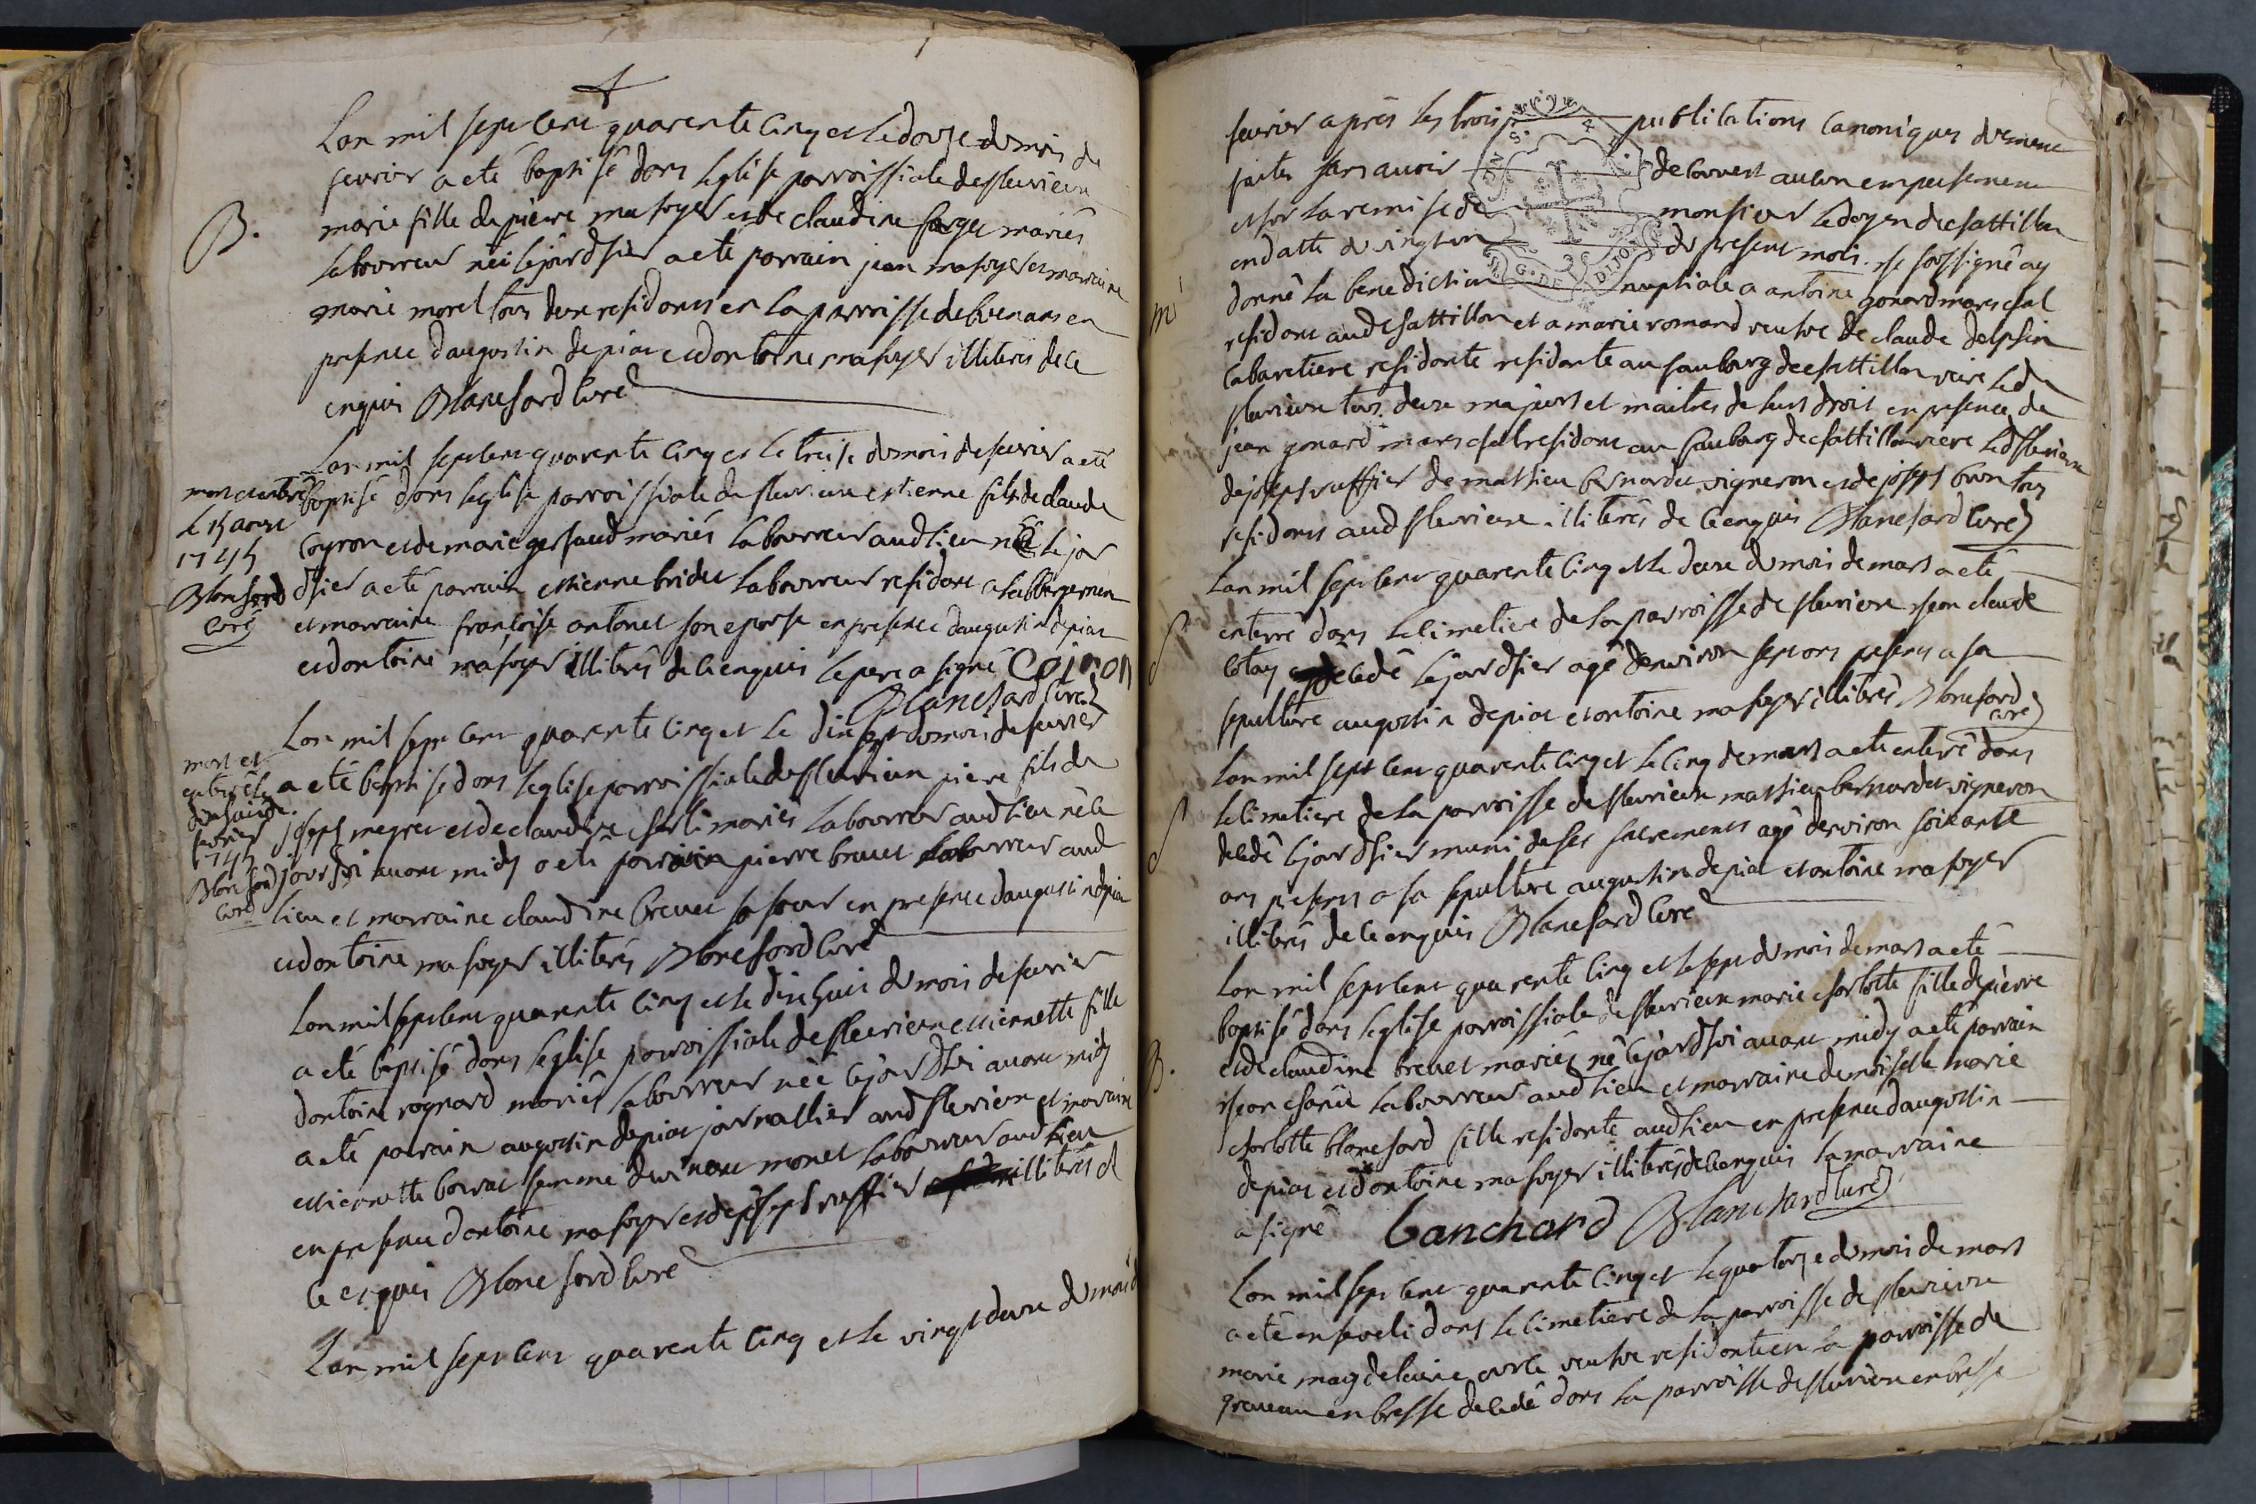 Lan mil sept cent quarente cinq et le douze du mois de
fevrier a eté baptisé dans leglise parroissiale de fleurieux
B.
marie fille de pierre mafoyer et de claudine farget mariés
laboureur née lejourdhier a eté parrain jean mafoyer et marraine
marie morel tous deux residants en la parroisse de buenans en
presence daugustin depiat et dantoine mafoyer illiterés de ce
enquis Blanchard curé
Lan mil sept cent quarente cinq et le treise du mois de fevrier a eté
mort et enterré
le 15 aoust
1745
Blanchard
curé
baptisé dans leglise parroissiale de fleurieux estienne fils de claude
Coyron et de marie gersaud mariés laboureur audlieu né lejour
dhier a eté parrain estienne bridet laboureur residant a labbergement
et marraine francoise antonet son epouse en presence daugustin depiat
et dantoine mafoyer illiterés de ce enquis le pere a signé Coiron
Blanchard curé
Lan mil sept cent quarente cinq et le dix sept du mois de fevrier
mort et
enterré le
dixhuit de
fevrier
1745
Blanchard
curé
a eté baptisé dans leglise parroissiale de fleurieux piere fils de
joseph megret et de claudine charli mariés laboureur audlieu né ce
jourdhui avant midy a eté parrain pierre brevet laboureur aud
lieu et marraine claudine brevet sa soeur en presence daugustin depiat
et dantoine mafoyer illiterés Blanchard curé
Lan mil sept cent quarente cinq et le dix huit du mois de fevrier
a eté baptisé dans leglise parroissiale de fleurieux estiennette fille
dantoine rognard mariés laboureur née cejourdhui avant midy
a eté parrain augustin depiat journallier aud fleurieux et marraine
estiennette borrat femme de vincent monet laboureur aud lieu
en presence dantoine mafoyer et de joseph ruffier illiterés d
ce enquis Blanchard curé
Lan mil sept cent quarente cinq et le vingt deux du mois d
fevrier apres les trois publications canoniques dument
faites sans avoir decouvert aucun empechement
et sur la remise de monsieur le doyen de chattillon
en datte du vingt un du present mois. je soussigné ay
m
donné la benediction nuptiale a antoine gonard marechal
residant aud chattillon et a marie romand veufve de claude delphin
cabaretiere residante residante au fauborg de chattillon riere led
fleurieux tous deux majeurs et maitres de leurs droit en presence de
jean gonard marechal residant au fauborg de chattillon riere led fleurieux
de joseph ruffier de mathieu bernardet vigneron et de joseph brun tous
residants aud fleurieux illiterés de ce enquis Blanchard curé
Lan mil sept cent quarente cinq et le deux du mois de mars a eté
S
enterré dans le cimetiere de la parroisse de fleurieux jean claude
cotay decedé lejourdhier agé denviron sept ans presents a sa
sepulture augustin depiat et antoine mafoyer illiterés Blanchard
curé
Lan mil sept cent quarente cinq et le cinq de mars a eté enterré dans
S
le cimetiere de la parroisse de fleurieux mathieu bernardet vigneron
decedé lejourdhier muni de ses sacrements agé denviron soixante
ans presents a sa sepulture augustin depiat et antoine mafoyer
illiterés de ce enquis Blanchard curé
Lan mil sept cent quarente cinq et le sept du mois de mars a eté
baptisé dans leglise parroissiale de fleurieux marie charlotte fille de pierre
B.
et de claudine brevet mariés né cejourdhui avant midy a eté parrain
jean chanu laboureur aud lieu et marraine demoiselle marie
charlotte blanchard fille residante audlieu en presence daugustin
depiat et dantoine mafoyer illiterés de ce enquis la marraine
a signé banchard Blanchard curé
Lan mil sept cent quarente cinq et le quatorze du mois de mars
a eté enseveli dans le cimetiere de la parroisse de fleurieux
marie magdelaine veufve residante en la parroisse de
graveau en bresse decedé dans la parroisse de fleurieux en bresse